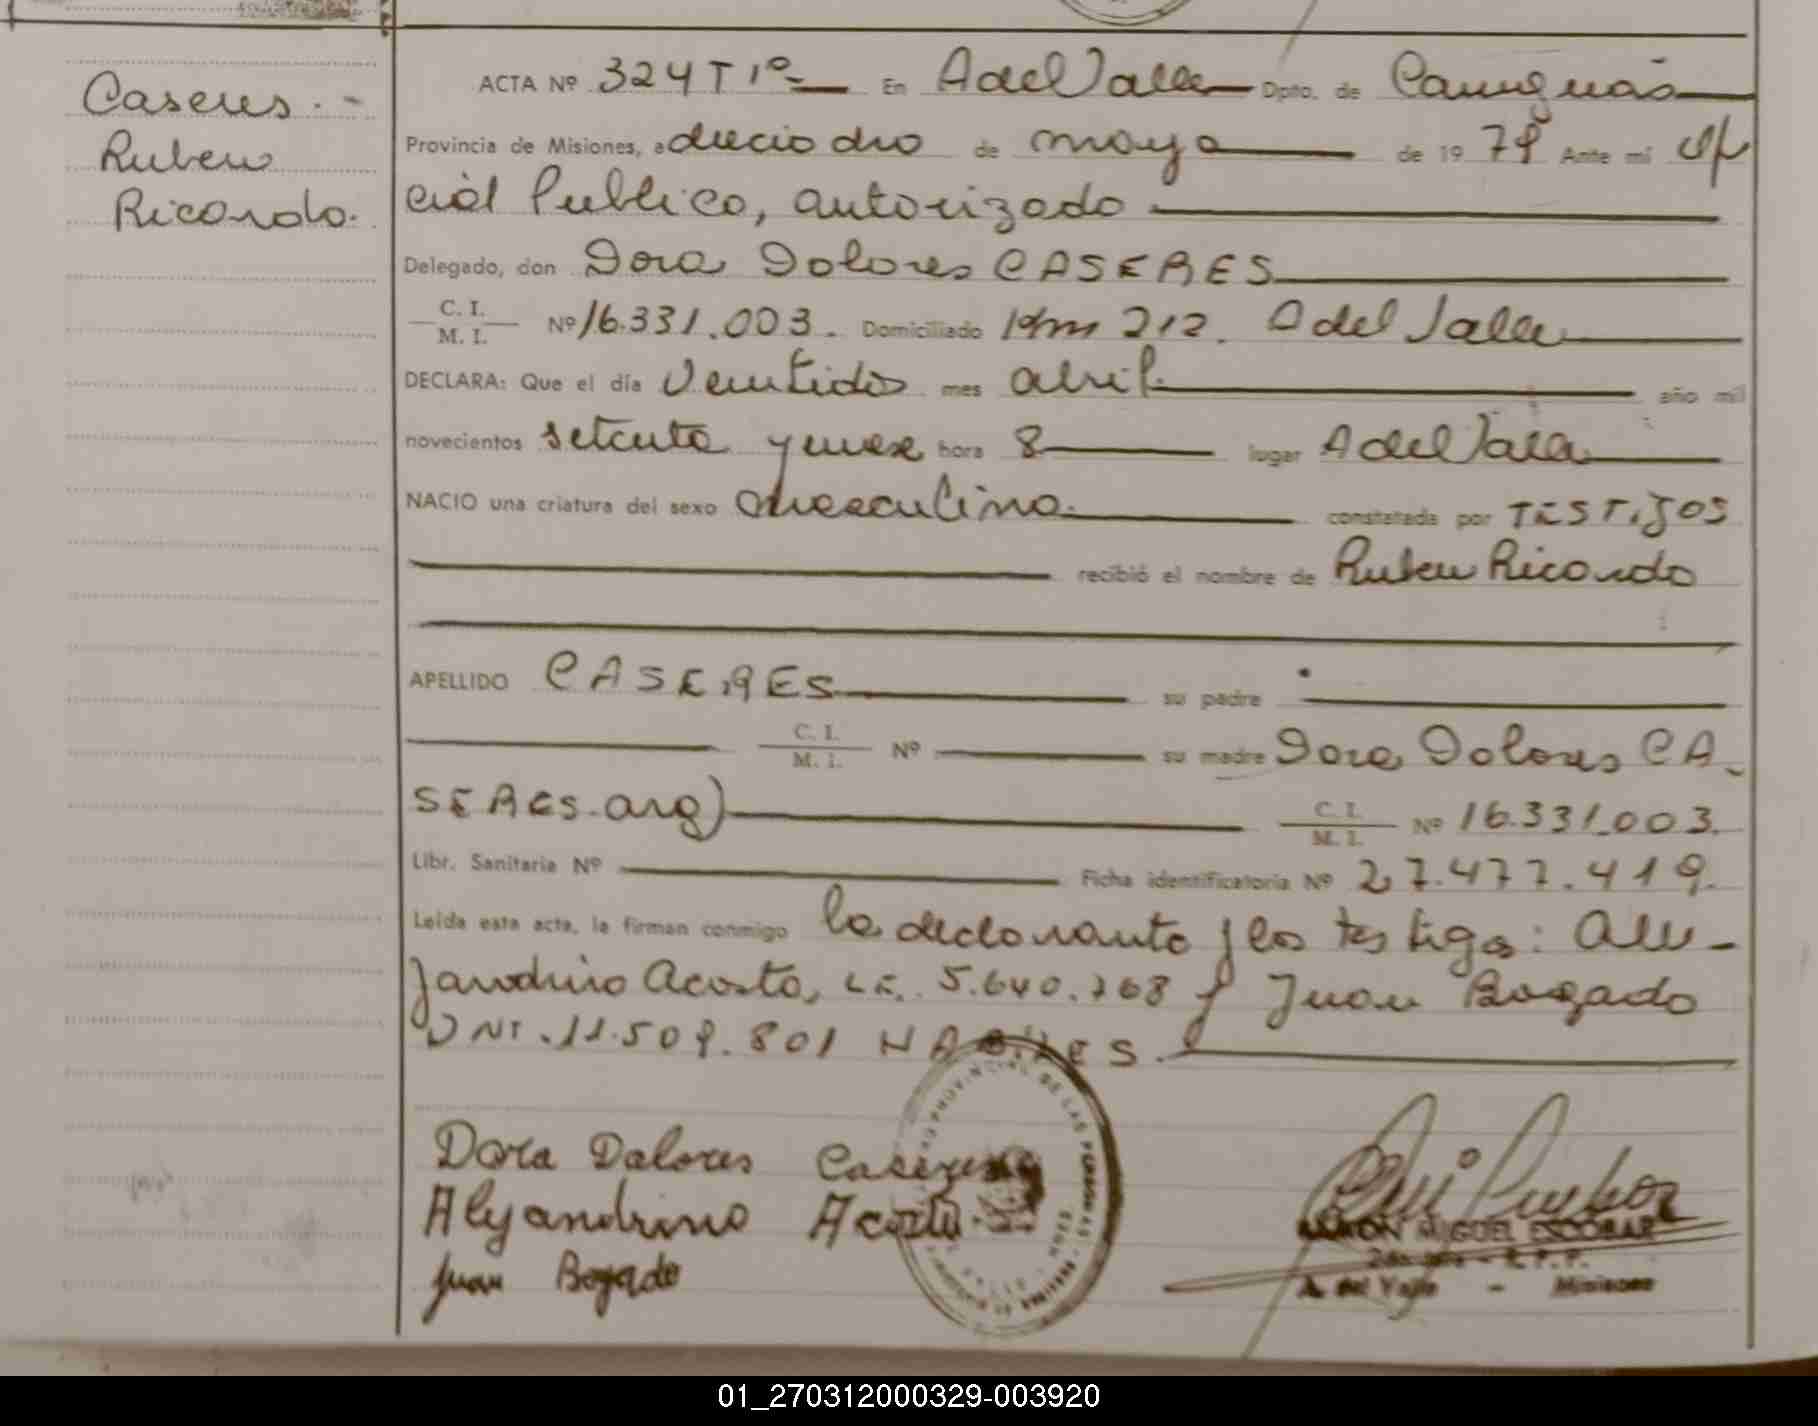 Caseres.-
Ruben
Ricardo.
ACTA Nº 324 T 1º En A del Valle Dpto. de Cainguás
Provincia de Misiones, a dieciocho de mayo de 1979 Ante mí ofi
cial Publico, autorizado
Delegado, don Dora Dolores CASERES
C. I.
M. I. Nº 16.331.003. Domiciliado Km 212. A del Valle
DECLARA: Que el día veintidós mes abril año mil
novecientos setenta y nueve hora 8 lugar A del Valle
NACIO una criatura del sexo masculino. constatada por TESTIJOS
recibió el nombre de Ruben Ricardo
APELLIDO CASERES su padre
C. I.
M. I. Nº su madre Dora Dolores CA-
SERES-arg) C. I.
M. I. Nº 16.331.003.
Libr. Sanitaria Nº Ficha identificatoria Nº 27.477.419.
Leída esta acta, la firman conmigo la declarante y los testigos: Ale-
jandrino Acosta, LE. 5.640.768 y Juan Bogado
DNI. 11.509.801 HABILES.
Dora Dalores Caseres
Alejandrino Acosta
Juan Bogado
RAMON MIGUEL ESCOBAR
A. del Valle - Misiones
01_270312000329-003920